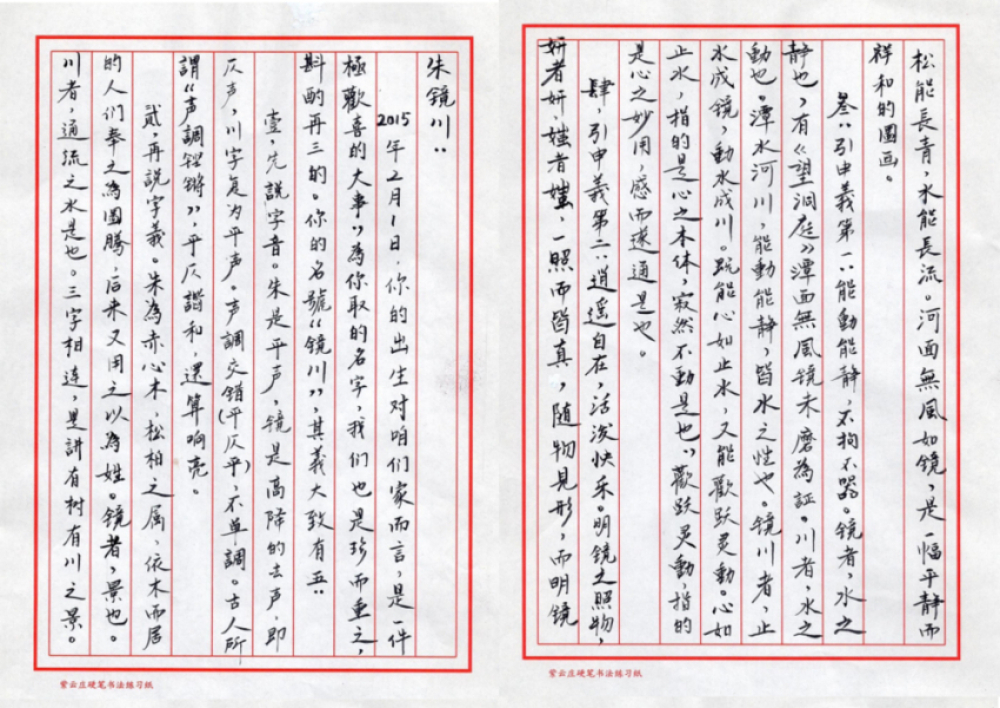 朱镜川：
2015年2月1日，你的出生对咱们家而言，是一件
極歡喜的大事，为你取的名字，我们也是珍而重之，
斟酌再三的。你的名號《镜川》，其義大致有五：
壹，先説字音。朱是平声，镜是高降的去声，即
仄声，川字复为平声。声調交错(平仄平)，不单調。古人所
謂《声調铿锵》，平仄諧和，還算响亮。
貳，再説字義。朱為赤心木，松柏之属，依木而居
的人们奉之為圖騰，后来又用之以為姓。镜者，景也。
川者，通流之水是也。三字相连，是讲有树有川之景。
紫云庄硬笔书法练习纸
松能長青，水能長流。河面無風如镜，是一幅平静而
祥和的圖画。
叁，引申義第一，能動能静，不拘不器。镜者，水之
静也，有《望洞庭》潭面無風镜未磨為証。川者，水之
動也。潭水河川，能動能静，皆水之性也。镜川者，止
水成镜，動水成川。既能心如止水，又能歡跃灵動。心如
止水，指的是心之本体，寂然不動是也，歡跃灵動，指的
是心之妙用，感而遂通是也。
肆，引申義第二，逍遥自在，活泼快乐。明镜之照物，
妍者妍，媸者媸，一照而皆真，随物見形，而明镜
紫云庄硬笔书法练习纸